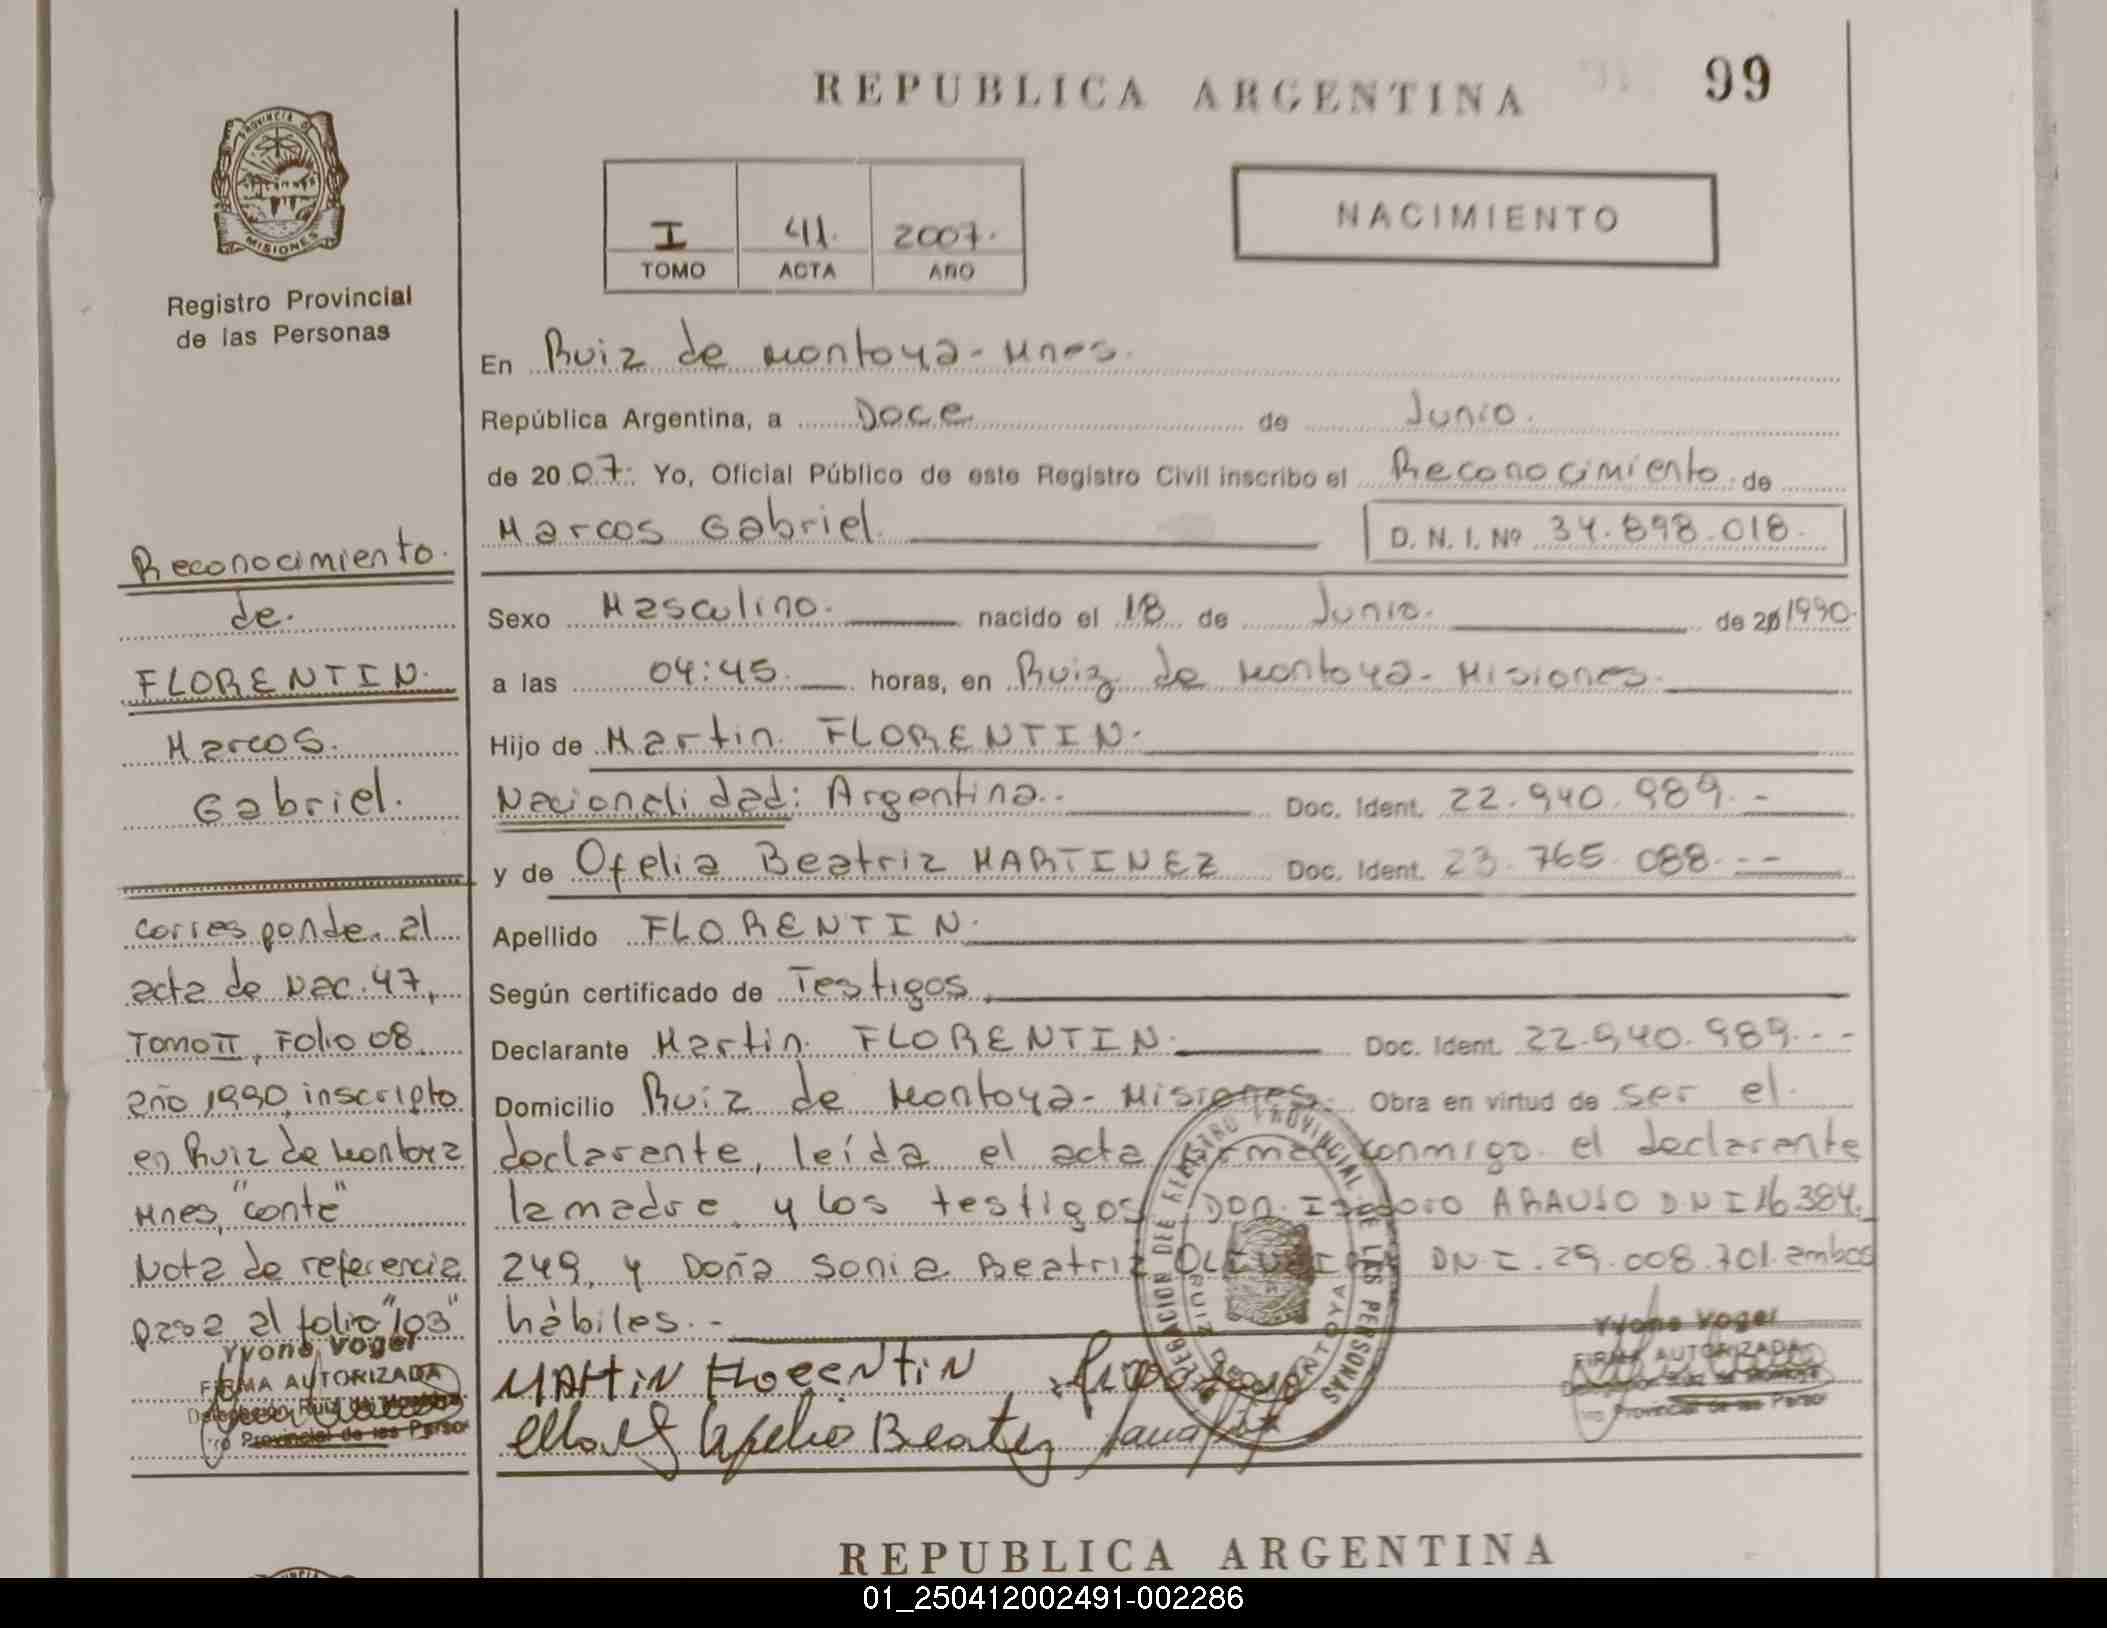 REPUBLICA ARGENTINA
99
PROVINCIA DE
MISIONES
Registro Provincial
de las Personas
I 411. 2007.
TOMO ACTA AÑO
NACIMIENTO
En Ruiz de Montoya - Mnes.
República Argentina, a Doce de Junio.
de 2007. Yo, Oficial Público de este Registro Civil inscribo el Reconocimiento de
Marcos Gabriel. D. N. I. Nº 34.898.018.
Sexo Masculino. nacido el 18 de Junio. de 20 1990.
a las 04:45. horas, en Ruiz de Montoya - Misiones.
Hijo de Martin FLORENTIN.
Nacionalidad: Argentina. Doc. Ident. 22.940.989.-
y de Ofelia Beatriz MARTINEZ Doc. Ident. 23.765.088.--
Apellido FLORENTIN.
Según certificado de Testigos.
Declarante Martin FLORENTIN. Doc. Ident. 22.940.989.--
Domicilio Ruiz de Montoya - Misiones. Obra en virtud de ser el.
declarante, leída el acta firma conmigo el declarante
la madre y los testigos DON Isidoro ARAUJO D.N.I 16.384.
249, y Doña Sonia Beatriz DNI. 29.008.701. ambos
hábiles.-
Reconocimiento.
de.
FLORENTIN.
Marcos.
Gabriel.
Corresponde al
acta de Nac. 47,
Tomo II, Folio 08
año 1990, inscripto
en Ruiz de Montoya
Mnes, "conte"
Nota de referencia
pasa al folio "103"
Yvone Voger
FIRMA AUTORIZADA
Delegación Ruiz de Montoya
Provincial de las Perso
MARtiN FloRENtiN
Ofelia Beatriz
DELEGACION DEL REGISTRO PROVINCIAL DE LAS PERSONAS
RUIZ DE MONTOYA
Yvone Voger
FIRMA AUTORIZADA
Delegación Ruiz de Montoya
Provincial de las Perso
REPUBLICA ARGENTINA
01_250412002491-002286